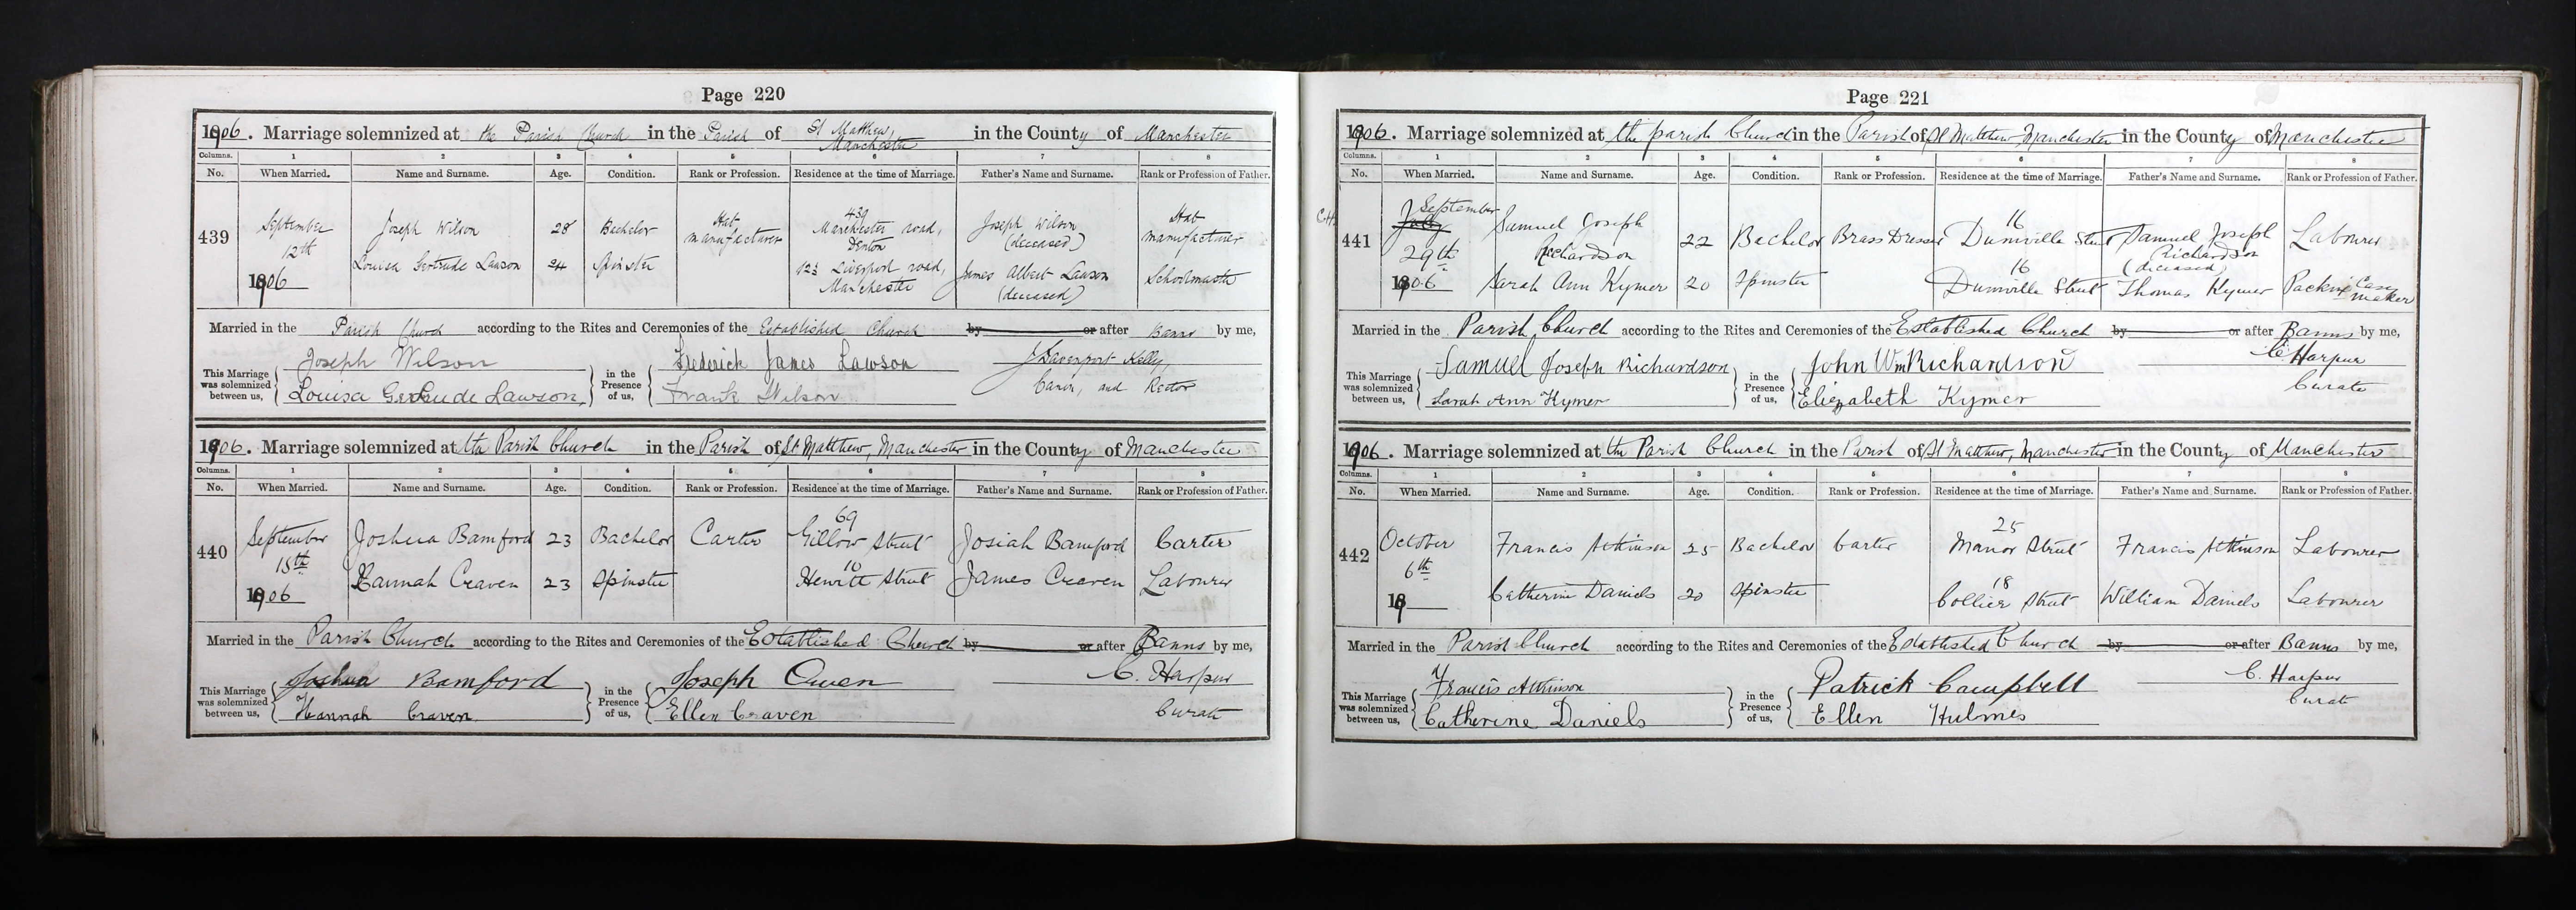 Page 220
1906. Marriage solemnized at the Parish Church in the Parish of St Matthew, Manchester in the County of Manchester
Columns. 1 2 3 4 5 6 7 8
No. When Married. Name and Surname. Age. Condition. Rank or Profession. Residence at the time of Marriage. Father's Name and Surname. Rank or Profession of Father.
439 September 12th 1906 Joseph Wilson 28 Bachelor Hat manufacturer 439 Manchester road, Denton Joseph Wilson (deceased) Hat manufacturer
Louisa Gertrude Lawson 24 Spinster 123 Liverpool road, Manchester James Albert Lawson (deceased) Schoolmaster
Married in the Parish Church according to the Rites and Ceremonies of the Established Church by or after Banns by me,
This Marriage was solemnized between us, Joseph Wilson in the Presence of us, Frederick James Lawson J Davenport Kelly,
Louisa Gertrude Lawson, Frank Wilson Canon, and Rector
1906. Marriage solemnized at the Parish Church in the Parish of St Matthew, Manchester in the County of Manchester
Columns. 1 2 3 4 5 6 7 8
No. When Married. Name and Surname. Age. Condition. Rank or Profession. Residence at the time of Marriage. Father's Name and Surname. Rank or Profession of Father.
440 September 15th 1906 Joshua Bamford 23 Bachelor Carter 69 Gillow Street Josiah Bamford Carter
Hannah Craven 23 Spinster 10 Hewitt Street James Craven Labourer
Married in the Parish Church according to the Rites and Ceremonies of the Established Church by or after Banns by me,
This Marriage was solemnized between us, Joshua Bamford in the Presence of us, Joseph Owen C. Harpur
Hannah Craven Ellen Craven Curate
Page 221
1906. Marriage solemnized at the parish Church in the Parish of St Matthew, Manchester in the County of Manchester
Columns. 1 2 3 4 5 6 7 8
No. When Married. Name and Surname. Age. Condition. Rank or Profession. Residence at the time of Marriage. Father's Name and Surname. Rank or Profession of Father.
C.H. 441 July September 29th 1906 Samuel Joseph Richardson 22 Bachelor Brass Dresser 16 Dumville Street Samuel Joseph Richardson (deceased) Labourer
Sarah Ann Kymer 20 Spinster 16 Dumville Street Thomas Kymer Packing Case maker
Married in the Parish Church according to the Rites and Ceremonies of the Established Church by or after Banns by me,
This Marriage was solemnized between us, Samuel Joseph Richardson in the Presence of us, John Wm Richardson C. Harpur
Sarah Ann Kymer Elizabeth Kymer Curate
1906. Marriage solemnized at the Parish Church in the Parish of St Matthew, Manchester in the County of Manchester
Columns. 1 2 3 4 5 6 7 8
No. When Married. Name and Surname. Age. Condition. Rank or Profession. Residence at the time of Marriage. Father's Name and Surname. Rank or Profession of Father.
442 October 6th 19 Francis Atkinson 25 Bachelor Carter 25 Manor Street Francis Atkinson Labourer
Catherine Daniels 20 Spinster 18 Collier Street William Daniels Labourer
Married in the Parish Church according to the Rites and Ceremonies of the Established Church by or after Banns by me,
This Marriage was solemnized between us, Francis Atkinson in the Presence of us, Patrick Campbell C. Harpur
Catherine Daniels Ellen Hulmes Curate